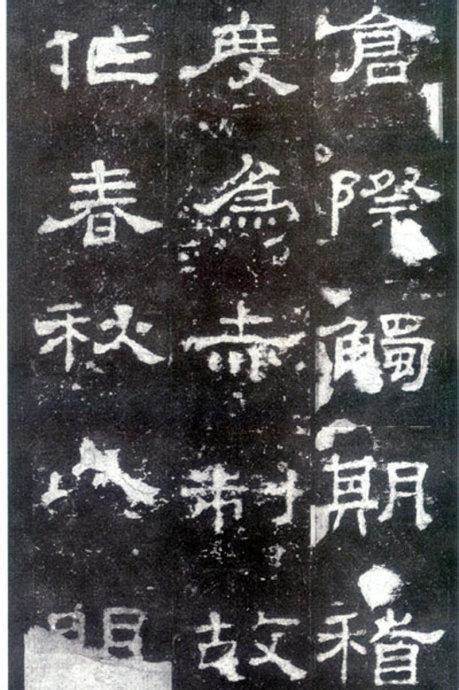 倉際觸期稽
度為赤制故
作春秋以明